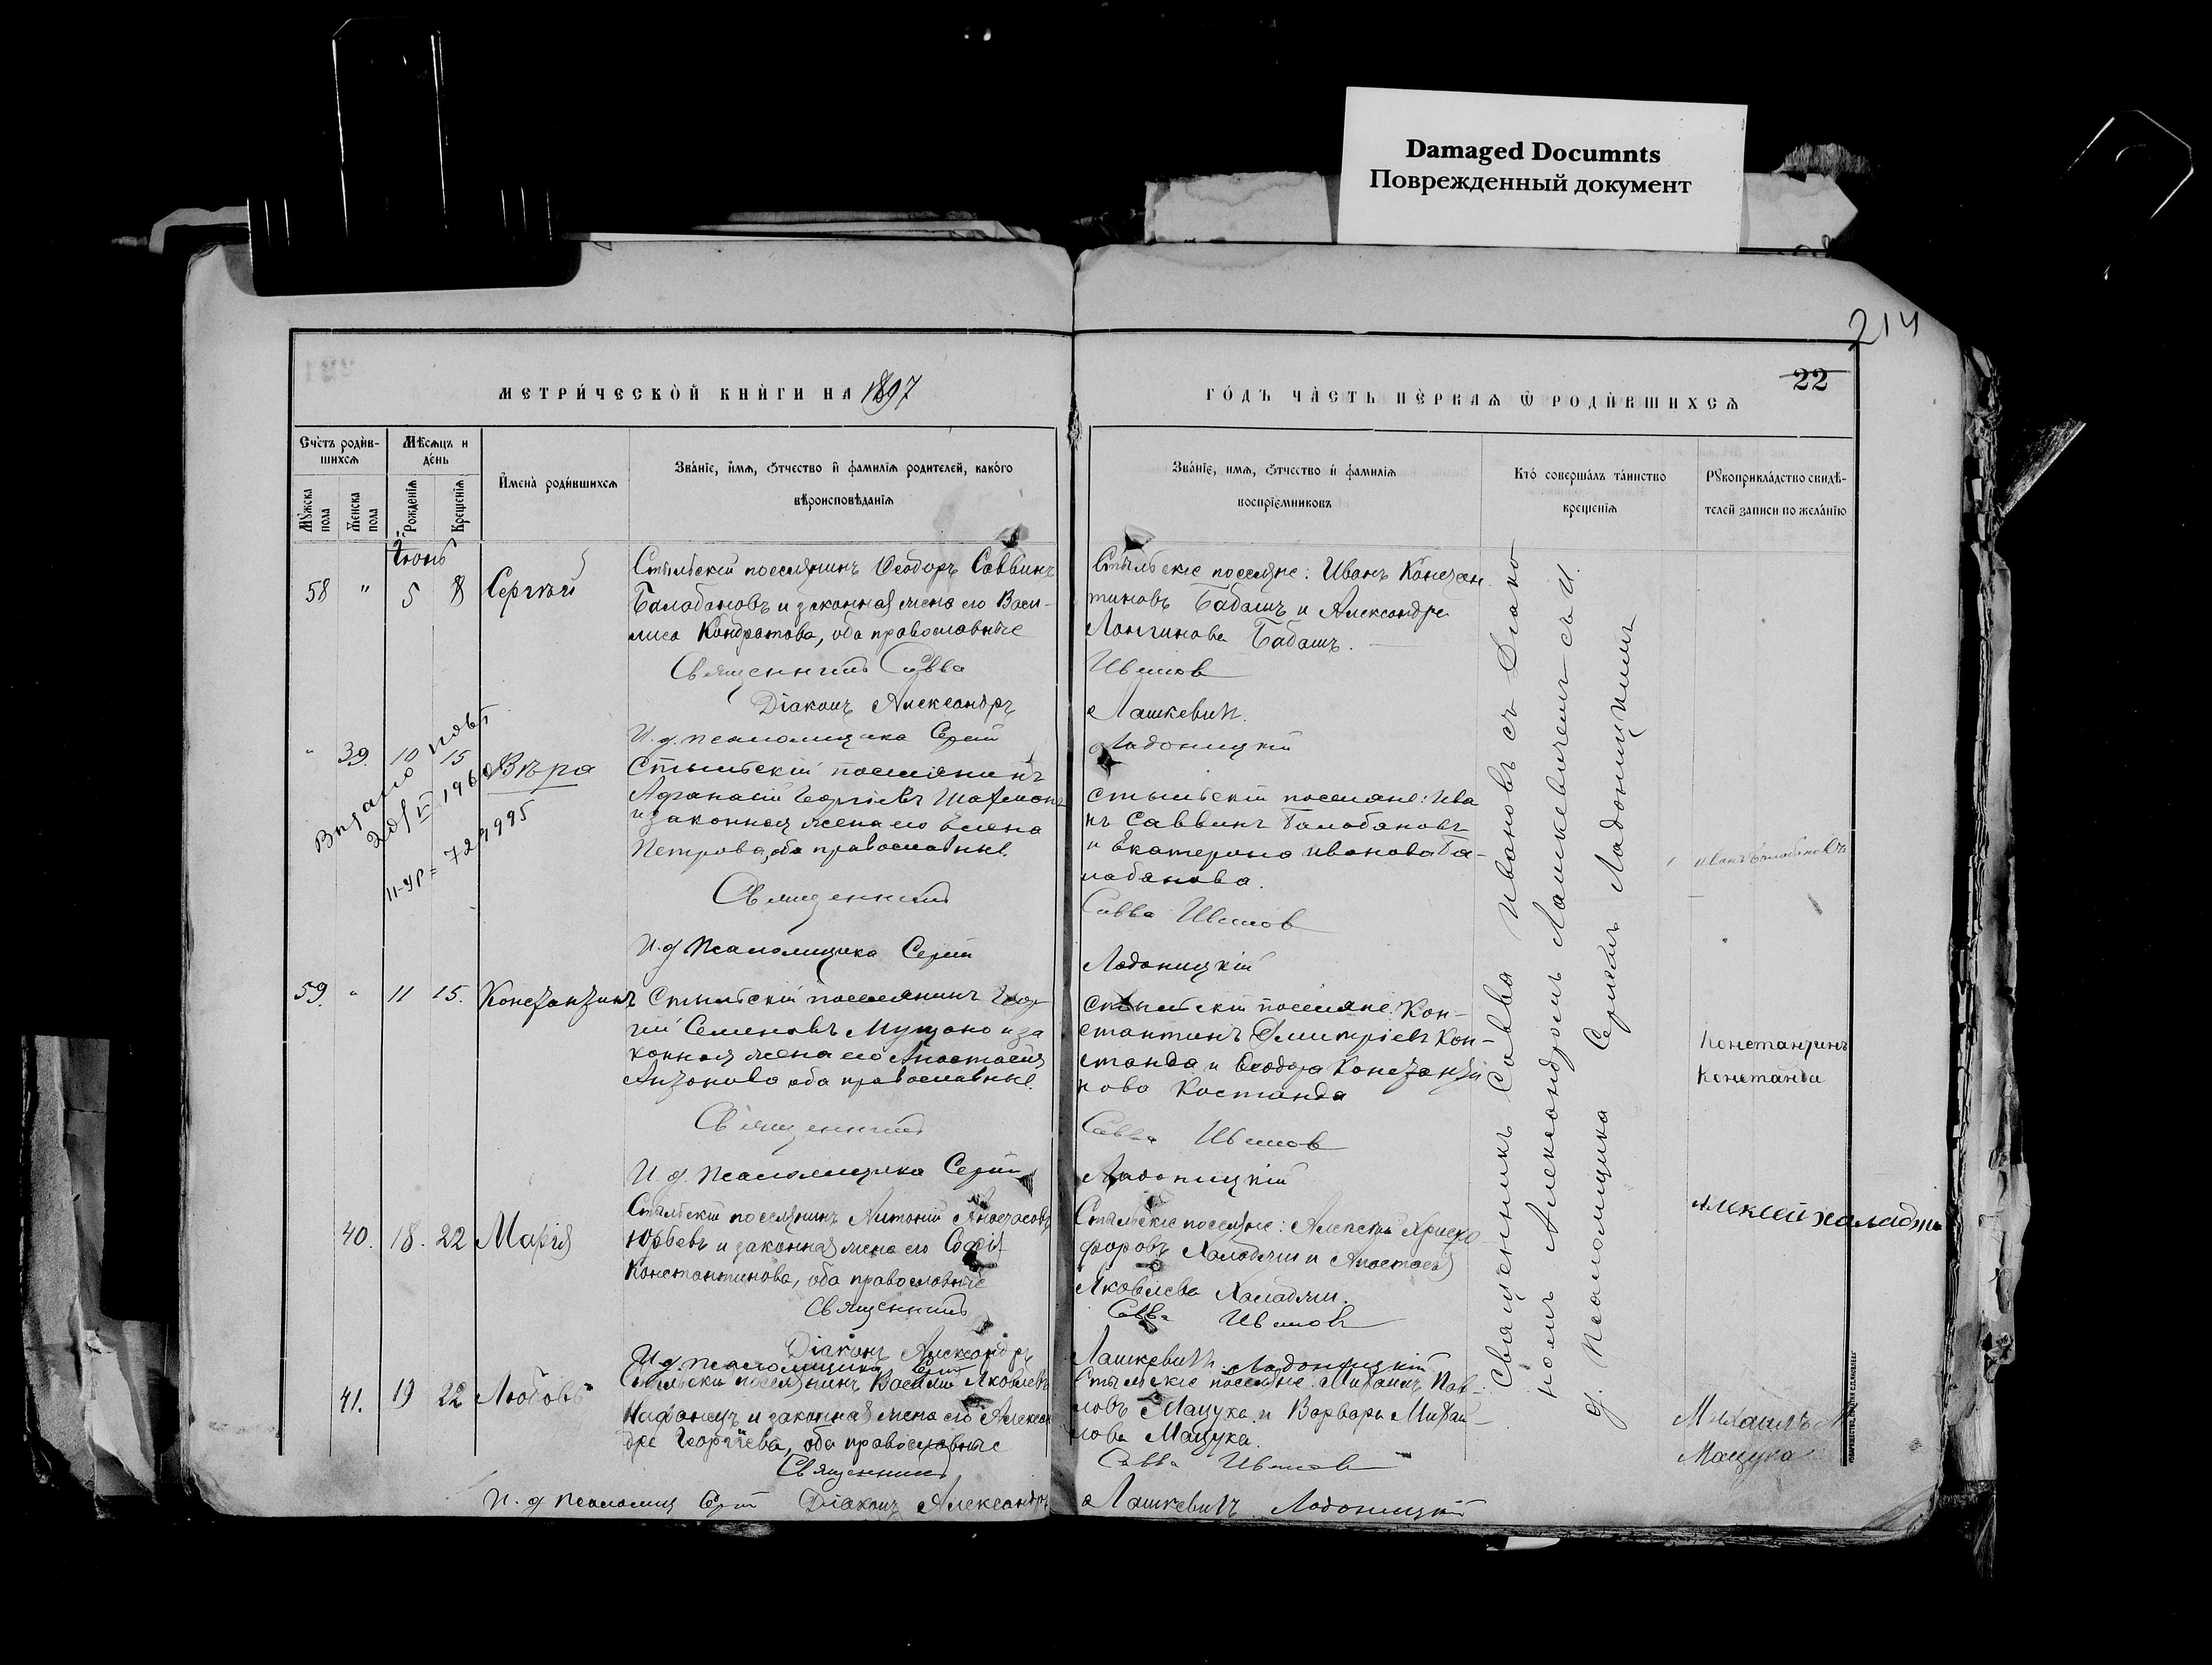 Damaged Documnts
Поврежденный документ
214
22
МЕТРИ́ЧЕСКОЙ КНИ́ГИ НА 1897
ГО́ДЪ ЧА́СТЬ ПЕ́РВАѦ Ѿ РОДИ́ВШИХСѦ
Сче́тъ роди́в-
шихсѧ
Мѣ́сѧцъ и
де́нь
Мꙋ́жска
пола
Же́нска
пола
Рожденїѧ
Крещенїѧ
И҆мена̀ роди́вшихсѧ
Зва́нїе, и҆́мѧ, ѻ҆́тчество и҆ фами́лїѧ родителей, како́гѡ
вѣроисповѣ́данїѧ
Зва́нїе, и҆мѧ, ѻ҆́тчество и҆ фами́лїѧ
воспрїе́мниковъ
Кто́ соверша́лъ та́инство
креще́нїѧ
Рꙋкоприкла́дство свидѣ́-
телей записи по жела́нїю
Іюнь
58 " 5 8 Сергѣй
Стыльскій поселянинъ Ѳеодоръ Саввинъ
Балабановъ и законная жена его Васи-
лиса Кондратова, оба православные
Священникъ Савва
Діаконъ Александръ
И. д. псаломщика Сергій
Стыльскіе поселяне: Иванъ Констан
тиновъ Бабашъ и Александра
Лонгинова Бабашъ.
Ивановъ
Лашкевичъ.
Ладоницкій
" 39. 10 15 Вѣра
Видано
196
II-УР
Стыльскій поселянинъ
Афанасій Георгіевъ
и законная жена его Елена
Петрова, оба православные.
Священникъ
И. д. Псаломщика Сергій
стыльскіи поселяне: Ива
нъ Саввинъ Балабановъ
и Екатерина Иванова Ба-
лабанова.
Савва Ивановъ
Ладоницкій
Иванъ Балабановъ
59. " 11 15. Константинъ
Стыльскій поселянинъ Геор-
гій Семеновъ и за
конная жена его Анастасія
Антонова оба православные.
Священникъ
И. д. Псаломщика Сергій
стыльскіи поселяне: Кон-
стантинъ Дмитріевъ Кон-
станда и Ѳеодора Константи
нова Костанда
Савва Ивановъ
Ладоницкій
Константинъ
Константа
40. 18. 22 Марія
Стыльскій поселянинъ Антоній Анастасовъ
Юрьевъ и законная жена его Софія
Константинова, оба православные
Священникъ
Діаконъ Александръ
И. д. псаломщика Сергій
Стыльскіе поселяне: Алексѣй Христо
форовъ Халаджи и Анастасія
Яковлева Халаджи.
Савва Ивановъ
Лашкевичъ. Ладоницкій
Алексей халаджи
41. 19 22 Любовь
Стыльскій поселянинъ Василій Яковлевъ
и законная жена его Алексан
дра Георгіева, оба православные
Священникъ
И. д. псаломщ Сергій Діаконъ Александръ
Стыльскіе поселяне: Михаилъ Пав-
ловъ Мацука и Варвара Михай-
лова Мацука.
Савва Ивановъ
Лашкевичъ Ладоницкій
Михаилъ
Мацука
Священникъ Савва Ивановъ съ Діако
номъ Александромъ Лашкевичемъ и съ И.
д. Псаломщика Сергіемъ Ладоницкимъ